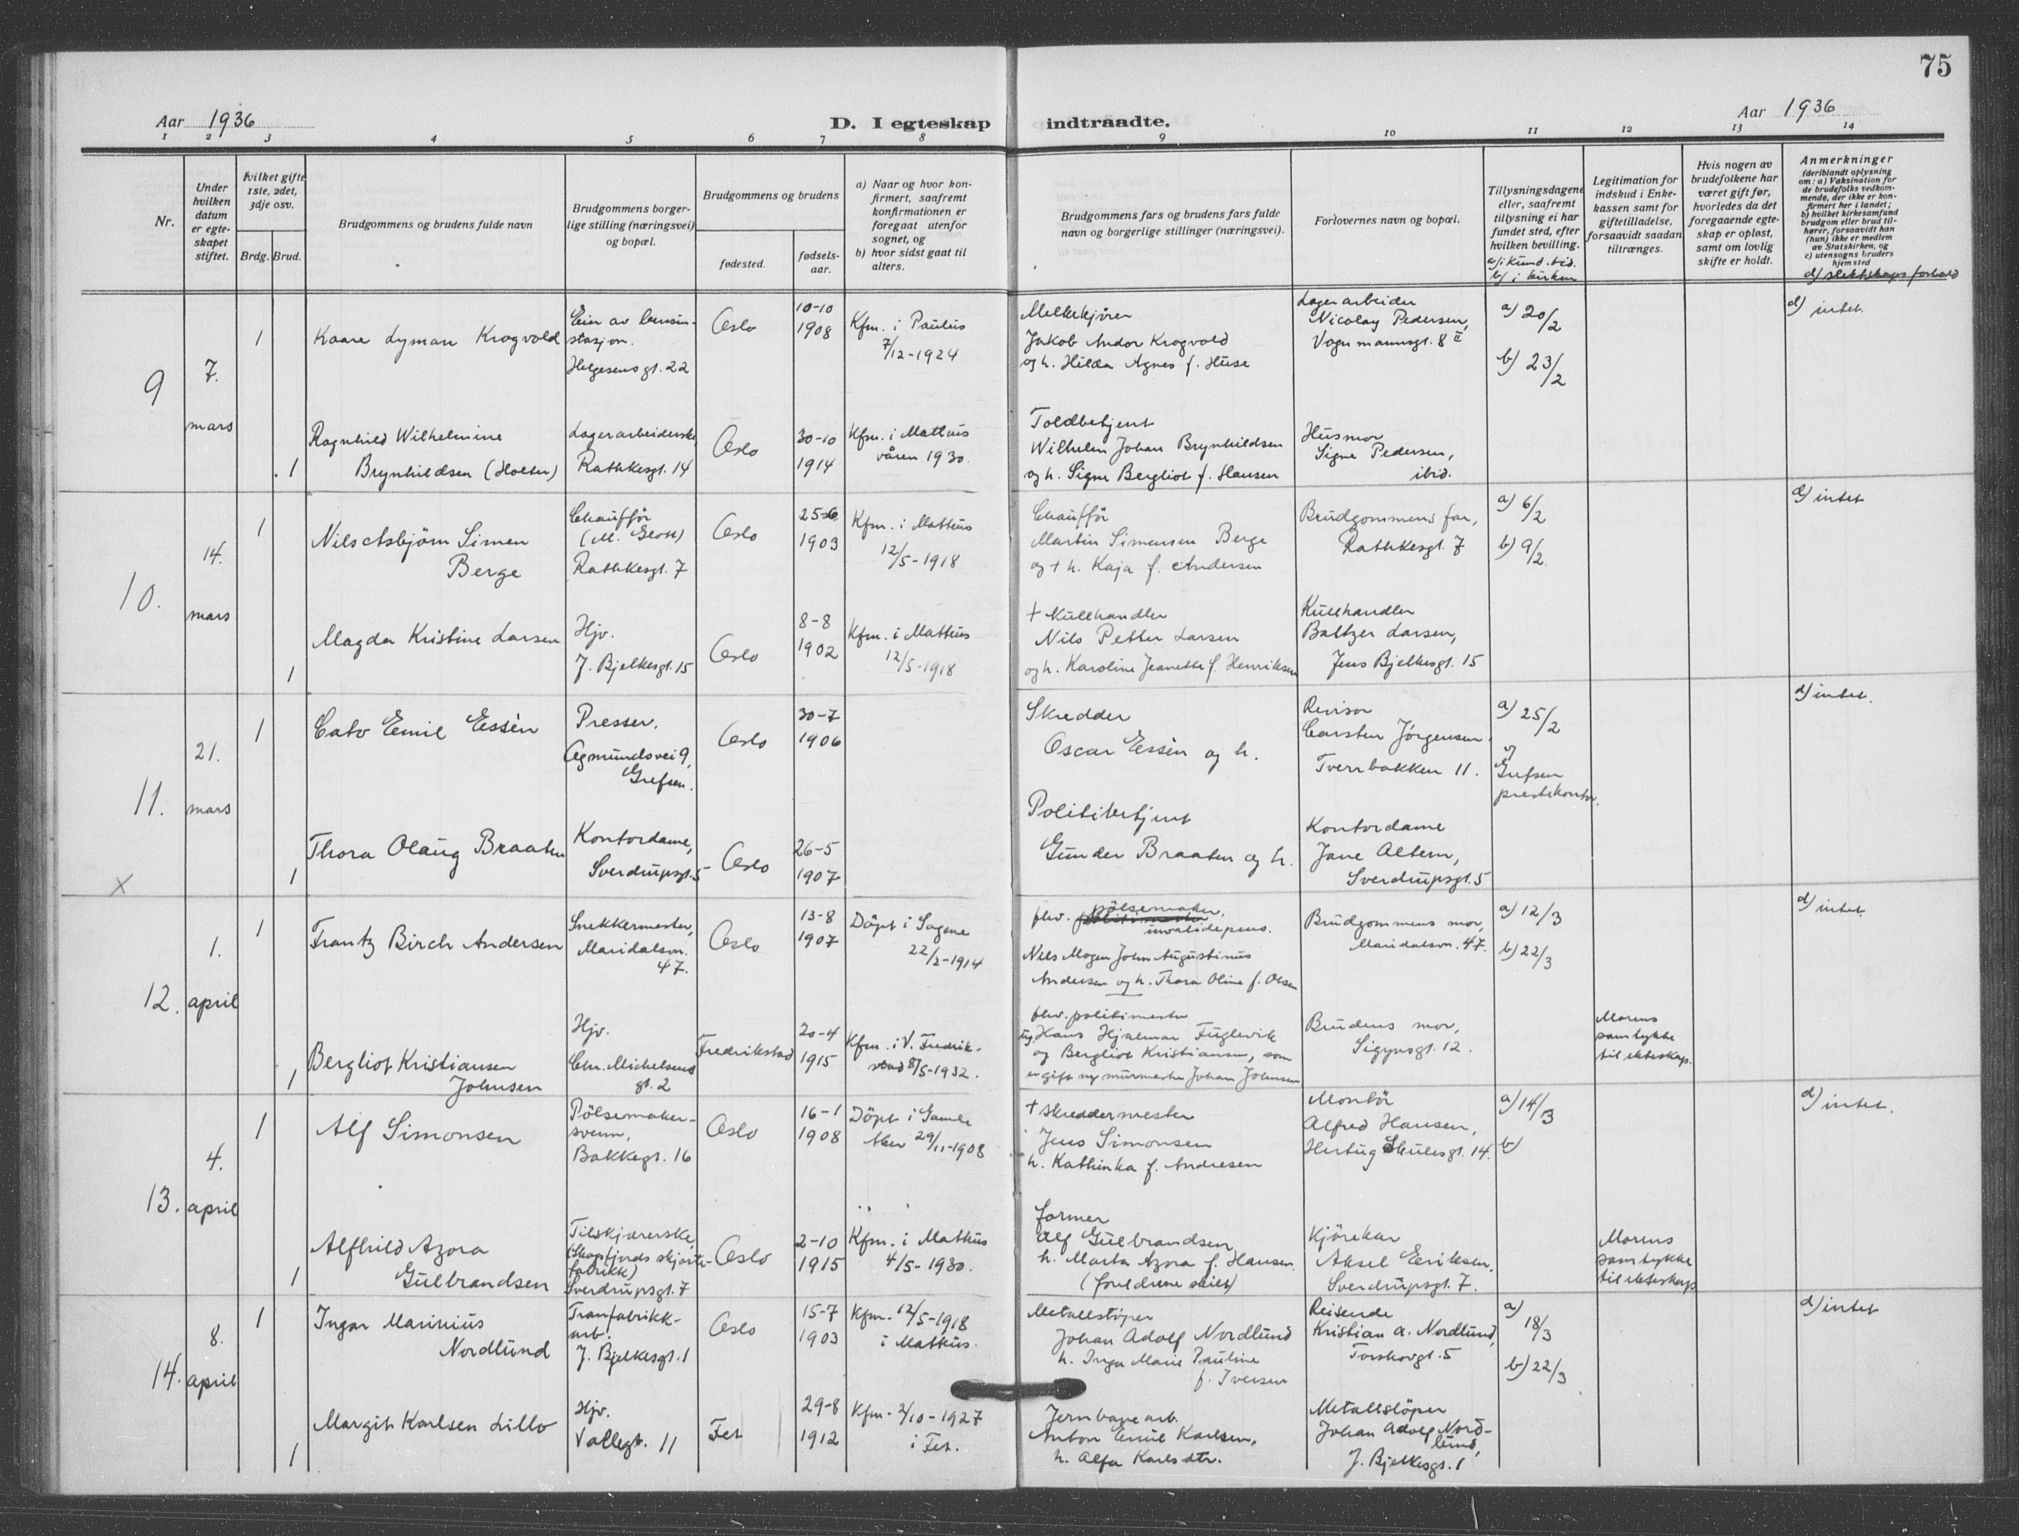 75
Aar 1936
D. I egteskap indtraadte.
Aar 1936
1 2 3 4 5 6 7 8 9 10 11 12 13 14
Nr.
Under hvilken datum er egteskapet stiftet.
Hvilket gifte 1ste, 2det, 3dje osv.
Brdg. Brud.
Brudgommens og brudens fulde navn
Brudgommens borgerlige stilling (næringsvei) og bopæl.
Brudgommens og brudens
fødested.
fødselsaar.
a) Naar og hvor konfirmert, saafremt konfirmationen er foregaat utenfor sognet, og
b) hvor sidst gaat til alters.
Brudgommens fars og brudens fars fulde navn og borgerlige stillinger (næringsvei).
Forlovernes navn og bopæl.
Tillysningsdagene eller, saafremt tillysning ei har fundet sted, efter hvilken bevilling.
a/ i Kund.tid.
b/ i kirken
Legitimation for indskud i Enkekassen samt for giftetilladelse, forsaavidt saadan tiltrænges.
Hvis nogen av brudefolkene har været gift før, hvorledes da det foregaaende egteskap er opløst, samt om lovlig skifte er holdt.
Anmerkninger
(deriblandt oplysning om: a) Vaksination for de brudefolks vedkommende, der ikke er konfirmert her i landet;
b) hvilket kirkesamfund brudgom eller brud tilhører, forsaavidt han (hun) ikke er medlem av Statskirken, og
c) utensogns bruders hjemsted
d/ slektskaps forhold
9
7.
mars
1
Kaare Lyman Krogvold
Eier av bensinstasjon.
Helgesensgt. 22
Oslo
10-10
1908
Kfm. i Paulus
7/12-1924
Melkekjører
Jakob Andor Krogvold
og h. Hilda Agnes f. Huse
Lagerarbeider
Nicolay Pedersen,
Vognmannsgt. 8 II
a) 20/2
b) 23/2
d) intet.
1
Ragnhild Wilhelmine
Brynhildsen (Holter)
Lagerarbeiderske
Rathkesgt. 14
Oslo
30-10
1914
Kfm. i Matheus
våren 1930.
Toldbetjent
Wilhelm Johan Brynhildsen
og h. Signe Bergliot f. Hansen
Husmor
Signe Pedersen,
ibid.
10.
14.
mars
1
Nils Asbjørn Simen
Berge
Chauffør
Rathkesgt. 7
Oslo
25-6
1903
Kfm. i Matteus
12/5-1918
Chauffør
Martin Simensen Berge
og + h. Kaja f. Andersen
Brudgommens far,
Rathkesgt. 7
a) 6/2
b) 9/2.
d) intet
1
Magda Kristine Larsen
Hjv.
J. Bjelkesgt. 15
Oslo
8-8
1902
Kfm. i Matheus
12/5-1918
+ Kullhandler
Nils Petter Larsen
og h. Karoline Jeanette f. Henriksen
Kullhandler
Baltzer Larsen,
Jens Bjelkesgt. 15
11.
21.
mars
1
Cato Emil Essèn
Presser,
Agmundsvei 9,
Grefsen.
Oslo
30-7
1906
Skredder
Oscar Essèn og h.
Revisor
Carsten Jørgensen
Tverrbakken 11.
a) 25/2
Grefsen
prestekontor.
d) intet.
x
1
Thora Olaug Braaten
Kontordame,
Sverdrupsgt. 5
Oslo
26-5
1907
Politibetjent
Gunder Braaten og h.
Kontordame
Jane Altern,
Sverdrupsgt. 5
12.
1.
april
1
Frantz Birch Andersen
Snekkermester,
Maridalsvn.
47.
Oslo
13-8
1907
Döpt i Sagene
22/2-1914
fhv. pølsemaker,
invalidepens.
Nils Mogen John Augustinus
Andersen og h. Thora Oline f. Olsen
Brudgommens mor,
Maridalsvn. 47.
a) 12/3
b) 22/3
d) intet
1
Bergliot Kristiansen
Johnsen
Hjv.
Chr. Michelsens
gt. 2
Fredrikstad
20-4
1915
Kfm. i V. Fredrikstad 8/5-1932.
fhv. politimester
Hans Hjalmar Fuglevik
og Bergliot Kristiansen, som
er gift m murmester Johan Johnsen
Brudens mor,
Sigynsgt. 12.
Morens
samtykke
til ekteskap.
13.
4.
april
1
Alf Simonsen
Pölsemaker-
svenn,
Bakkegt. 16
Oslo
16-1
1908
Döpt i Gamle
Aker 29/11-1908
+ skreddermester
Jens Simonsen
h. Kathinka f. Andresen
Montör
Alfred Hansen,
Hertug Skulesgt. 14.
a) 14/3
b)
d) intet.
1
Alfhild Azora
Gulbrandsen
Tilskjærerske
(Skogfjords skjortefabrikk)
Sverdrupsgt. 7
Oslo
2-10
1915
Kfm. i Matheus
4/5-1930.
former
Alf Gulbrandsen
h. Marta Azora f. Hansen.
(foreldrene skilt)
Kjörekar
Aksel Eriksen,
Sverdrupsgt. 7.
Morens
samtykke
til ekteskap
14.
8.
april
1
Ingar Marinius
Nordlund
Tranfabrikk-
arb.
J. Bjelkesgt. 1
Oslo
15-7
1903
Kfm. 12/5-1918
i Matheus.
Metallstøper
Johan Adolf Nordlund
h. Inga Marie Pauline
f. Iversen
Reisende
Kristian A. Nordlund,
Torshovgt. 5
a) 18/3
b) 22/3
d) intet
1
Margit Karlsen Lillo
Hjv.
Vallegt. 11
Fet
29-8
1912
Kfm. 2/10-1927
i Fet.
Jernbanearb.
Anton Emil Karlsen,
h. Alfa Karlsdtr.
Metallstöper
Johan Adolf Nord-
lund,
J. Bjelkesgt. 1